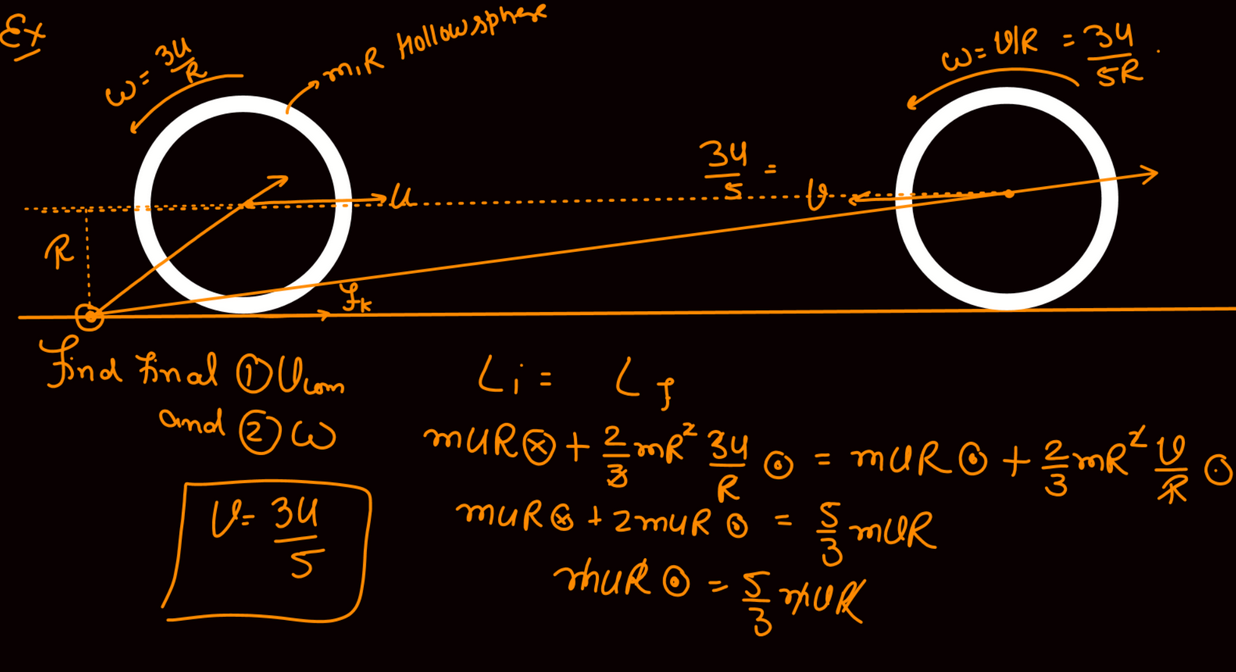 Ex
ω = 3u/R
m,R Hollow sphere
ω = v/R = 3u/5R
u
3u/5 = v
R
fk
Find final ① Vcom
and ② ω
Li = Lf
muR⊗ + 2/3 mR² 3u/R ⊙ = mvR ⊙ + 2/3 mR² v/R ⊙
muR⊗ + 2muR ⊙ = 5/3 mvR
muR ⊙ = 5/3 mvR
v = 3u/5